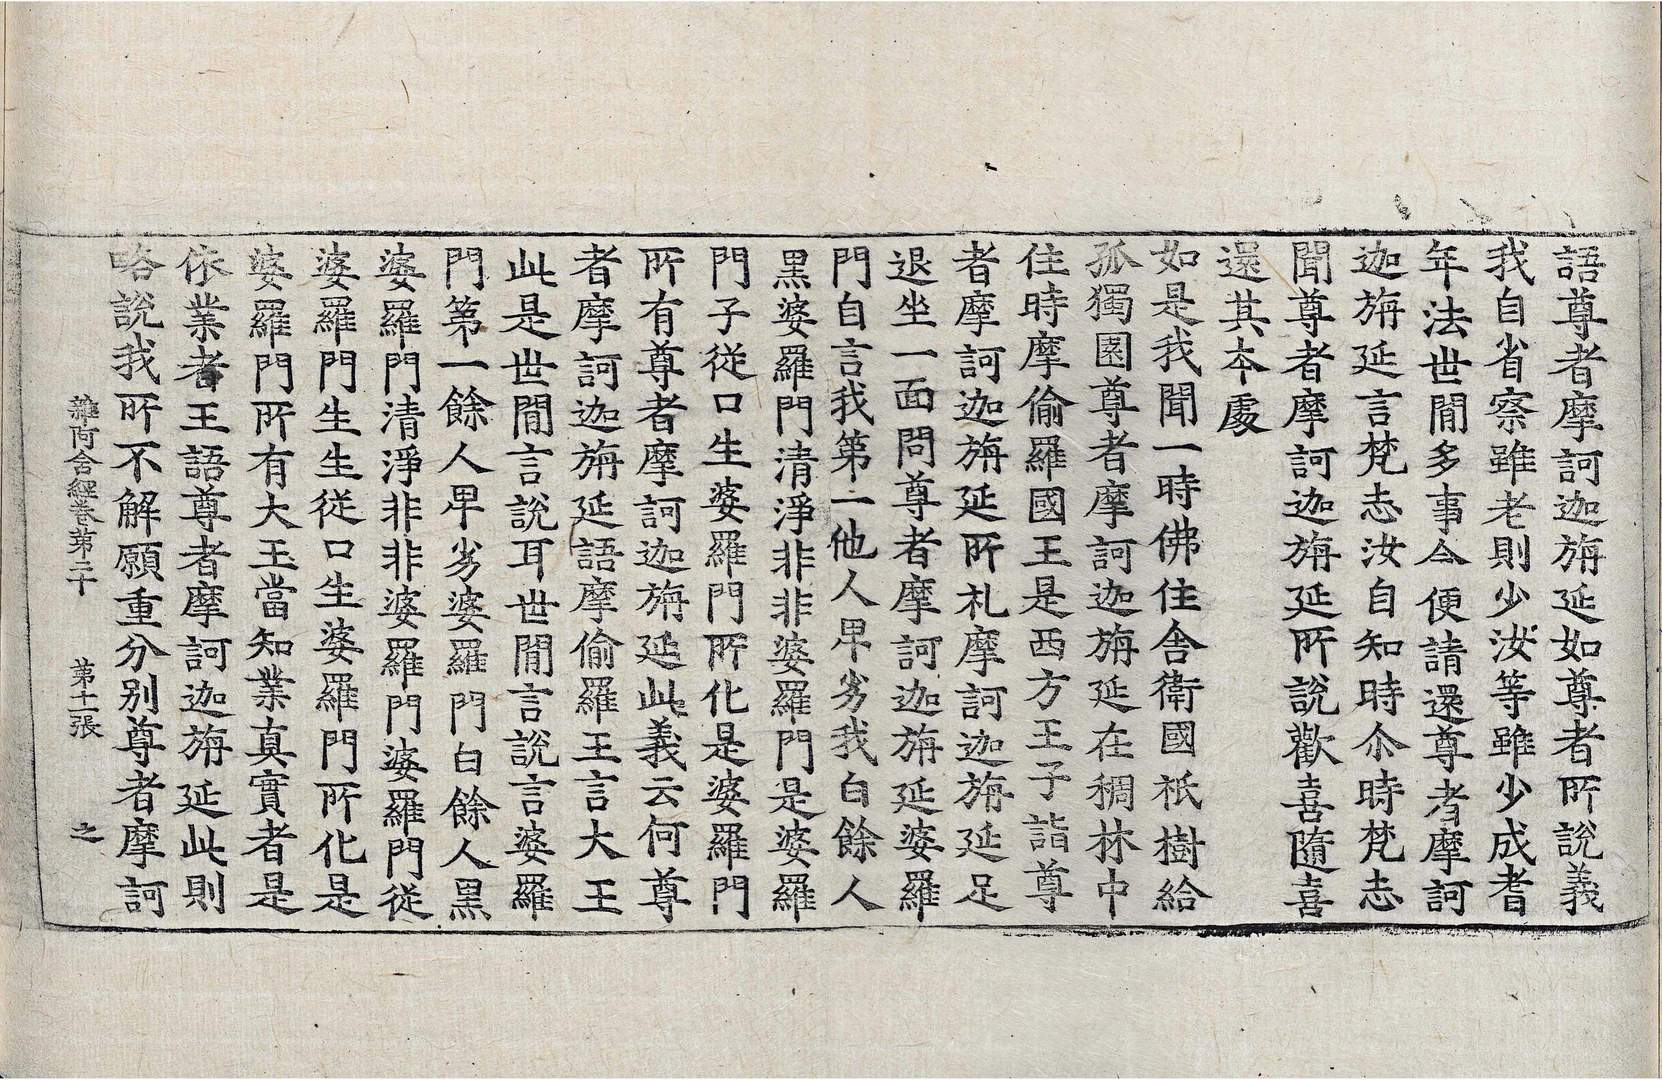 語尊者摩訶迦旃延如尊者所說義
我自省察雖老則少汝等雖少成耆
年法世閒多事今便請還尊者摩訶
迦旃延言梵志汝自知時尒時梵志
聞尊者摩訶迦旃延所說歡喜隨喜
還其本處
如是我聞一時佛住舍衛國祇樹給
孤獨園尊者摩訶迦旃延在稠林中
住時摩偷羅國王是西方王子詣尊
者摩訶迦旃延所札摩訶迦旃延足
退坐一面問尊者摩訶迦旃延婆羅
門自言我第一他人卑劣我白餘人
黒婆羅門清淨非非婆羅門是婆羅
門子從口生婆羅門所化是婆羅門
所有尊者摩訶迦旃延此義云何尊
者摩訶迦旃延語摩偷羅王言大王
此是世閒言說耳世閒言說言婆羅
門第一餘人卑劣婆羅門白餘人黒
婆羅門清淨非非婆羅門婆羅門從
婆羅門生生從口生婆羅門所化是
婆羅門所有大王當知業真實者是
依業者王語尊者摩訶迦旃延此則
略說我所不解願重分別尊者摩訶
雜阿含經卷第二十 第十張 之